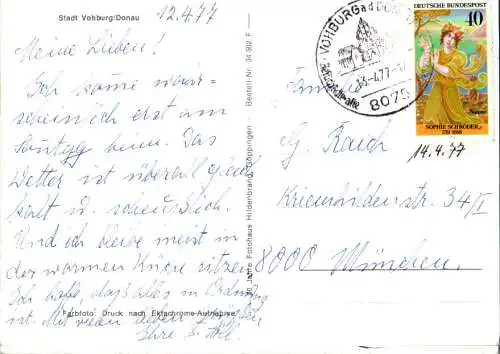 Stadt Vohburg/Donau
12.4.77
Meine Lieben!
Ich komme wahr-
scheinlich erst am
Sonntag heim. Das
Wetter ist überall gleich
kalt u. scheußlich.
Und ich bleibe meist in
der warmen Küche sitzen
Ich hoffe, daß alles in Ordnung
ist. Mit vielen lieben Grüßen
Ihre
Farbfoto: Druck nach Ektachrome-Aufnahme
Jahre Fotohaus Hildenbrand, Göppingen · Bestell-Nr. 34 982 F
VOHBURG a d DONAU
-3.-4.77-
8075
DEUTSCHE BUNDESPOST
40
SOPHIE SCHRÖDER
1781-1868
14.4.77
Familie
G. Rauch
Kriemhildenstr. 34/I
8000 München.